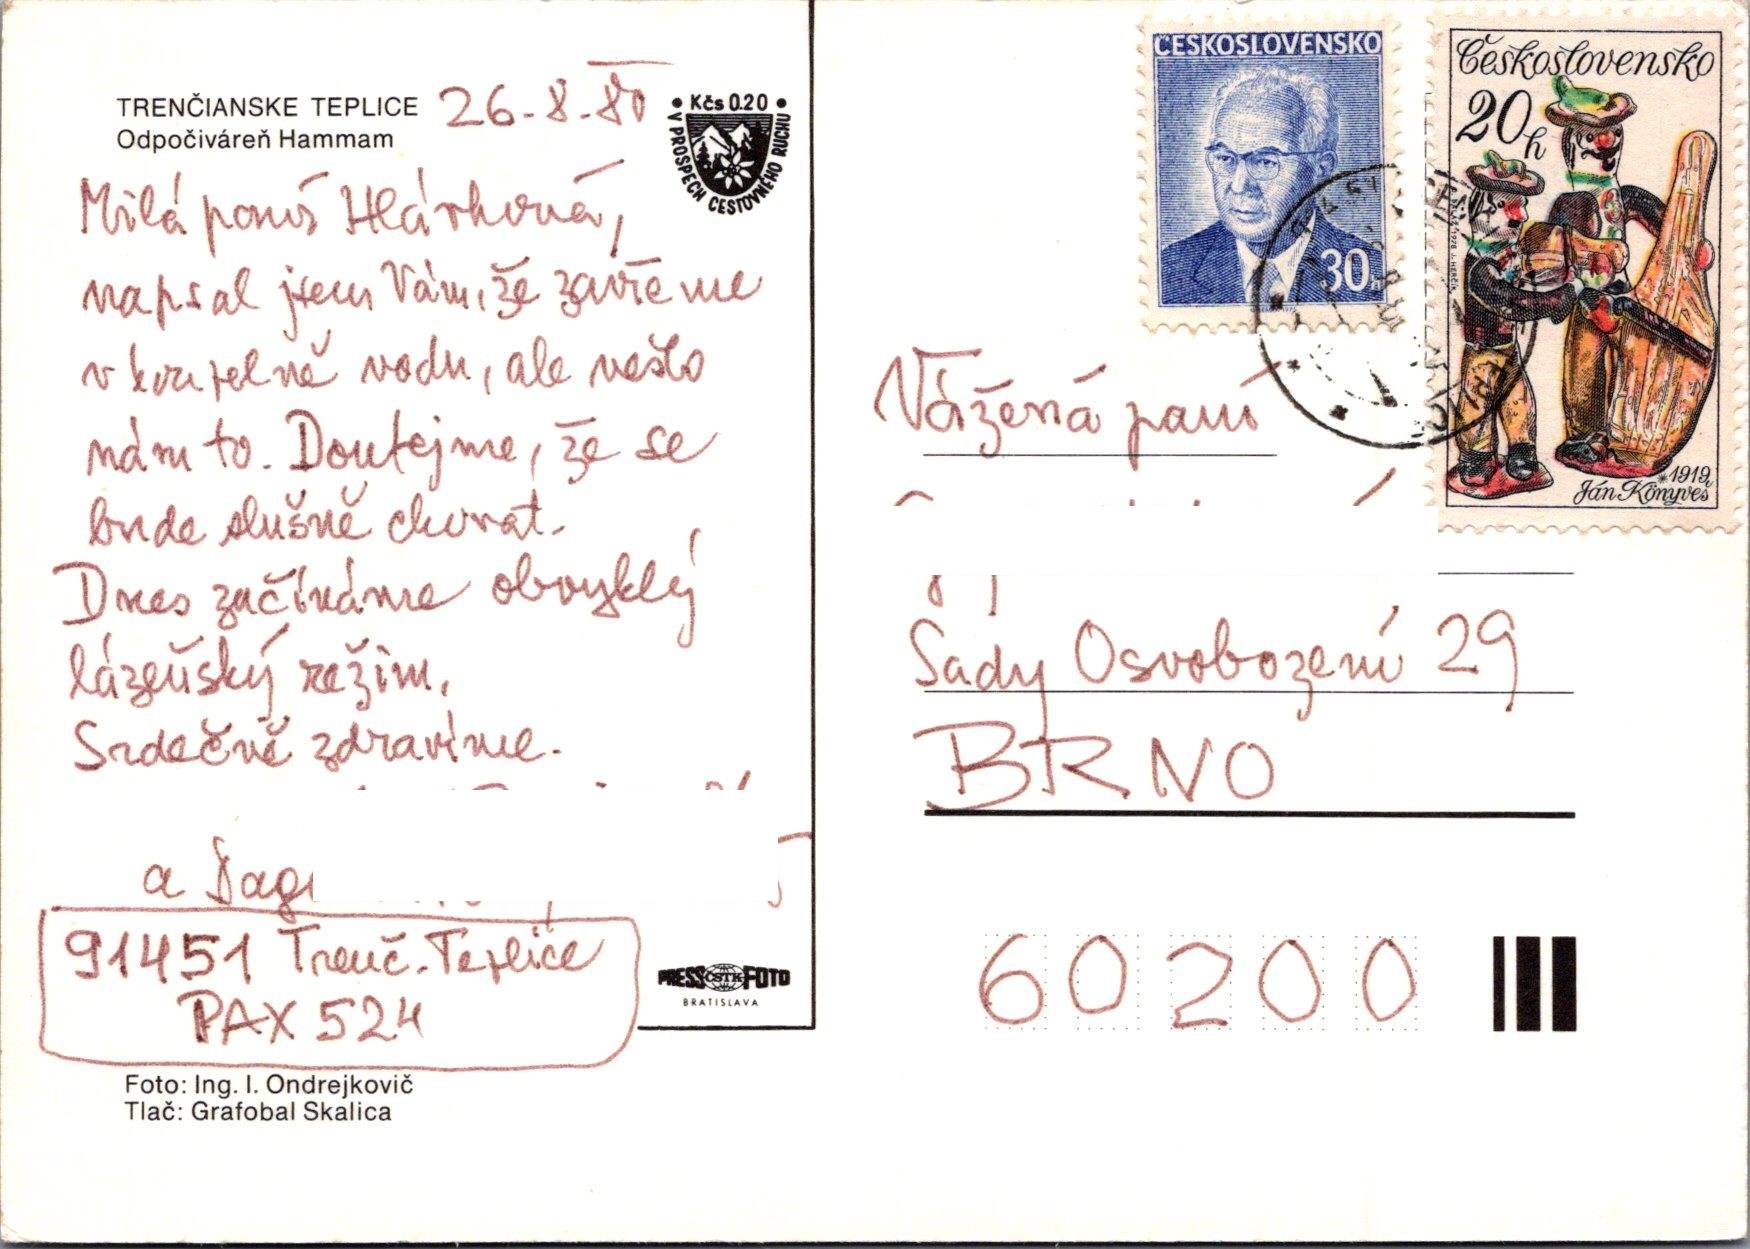 TRENČIANSKE TEPLICE
Odpočiváreň Hammam
26.8.80
• Kčs 0.20 •
V PROSPECH CESTOVNÉHO RUCHU
Milá paní Hlávková,
napsal jsem Vám, že zavřeme
v koupelně vodu, ale nešlo
nám to. Doufejme, že se
bude slušně chovat.
Dnes začínáme obvyklý
lázeňský režim.
Srdečně zdravíme.
a Dag
91451 Trenč. Teplice
PAX 524
PRESS ČSTK FOTO
BRATISLAVA
Foto: Ing. I. Ondrejkovič
Tlač: Grafobal Skalica
ČESKOSLOVENSKO
30
Československo
20h
*1919
Ján Könyveš
Vážená paní
Sady Osvobození 29
BRNO
60200